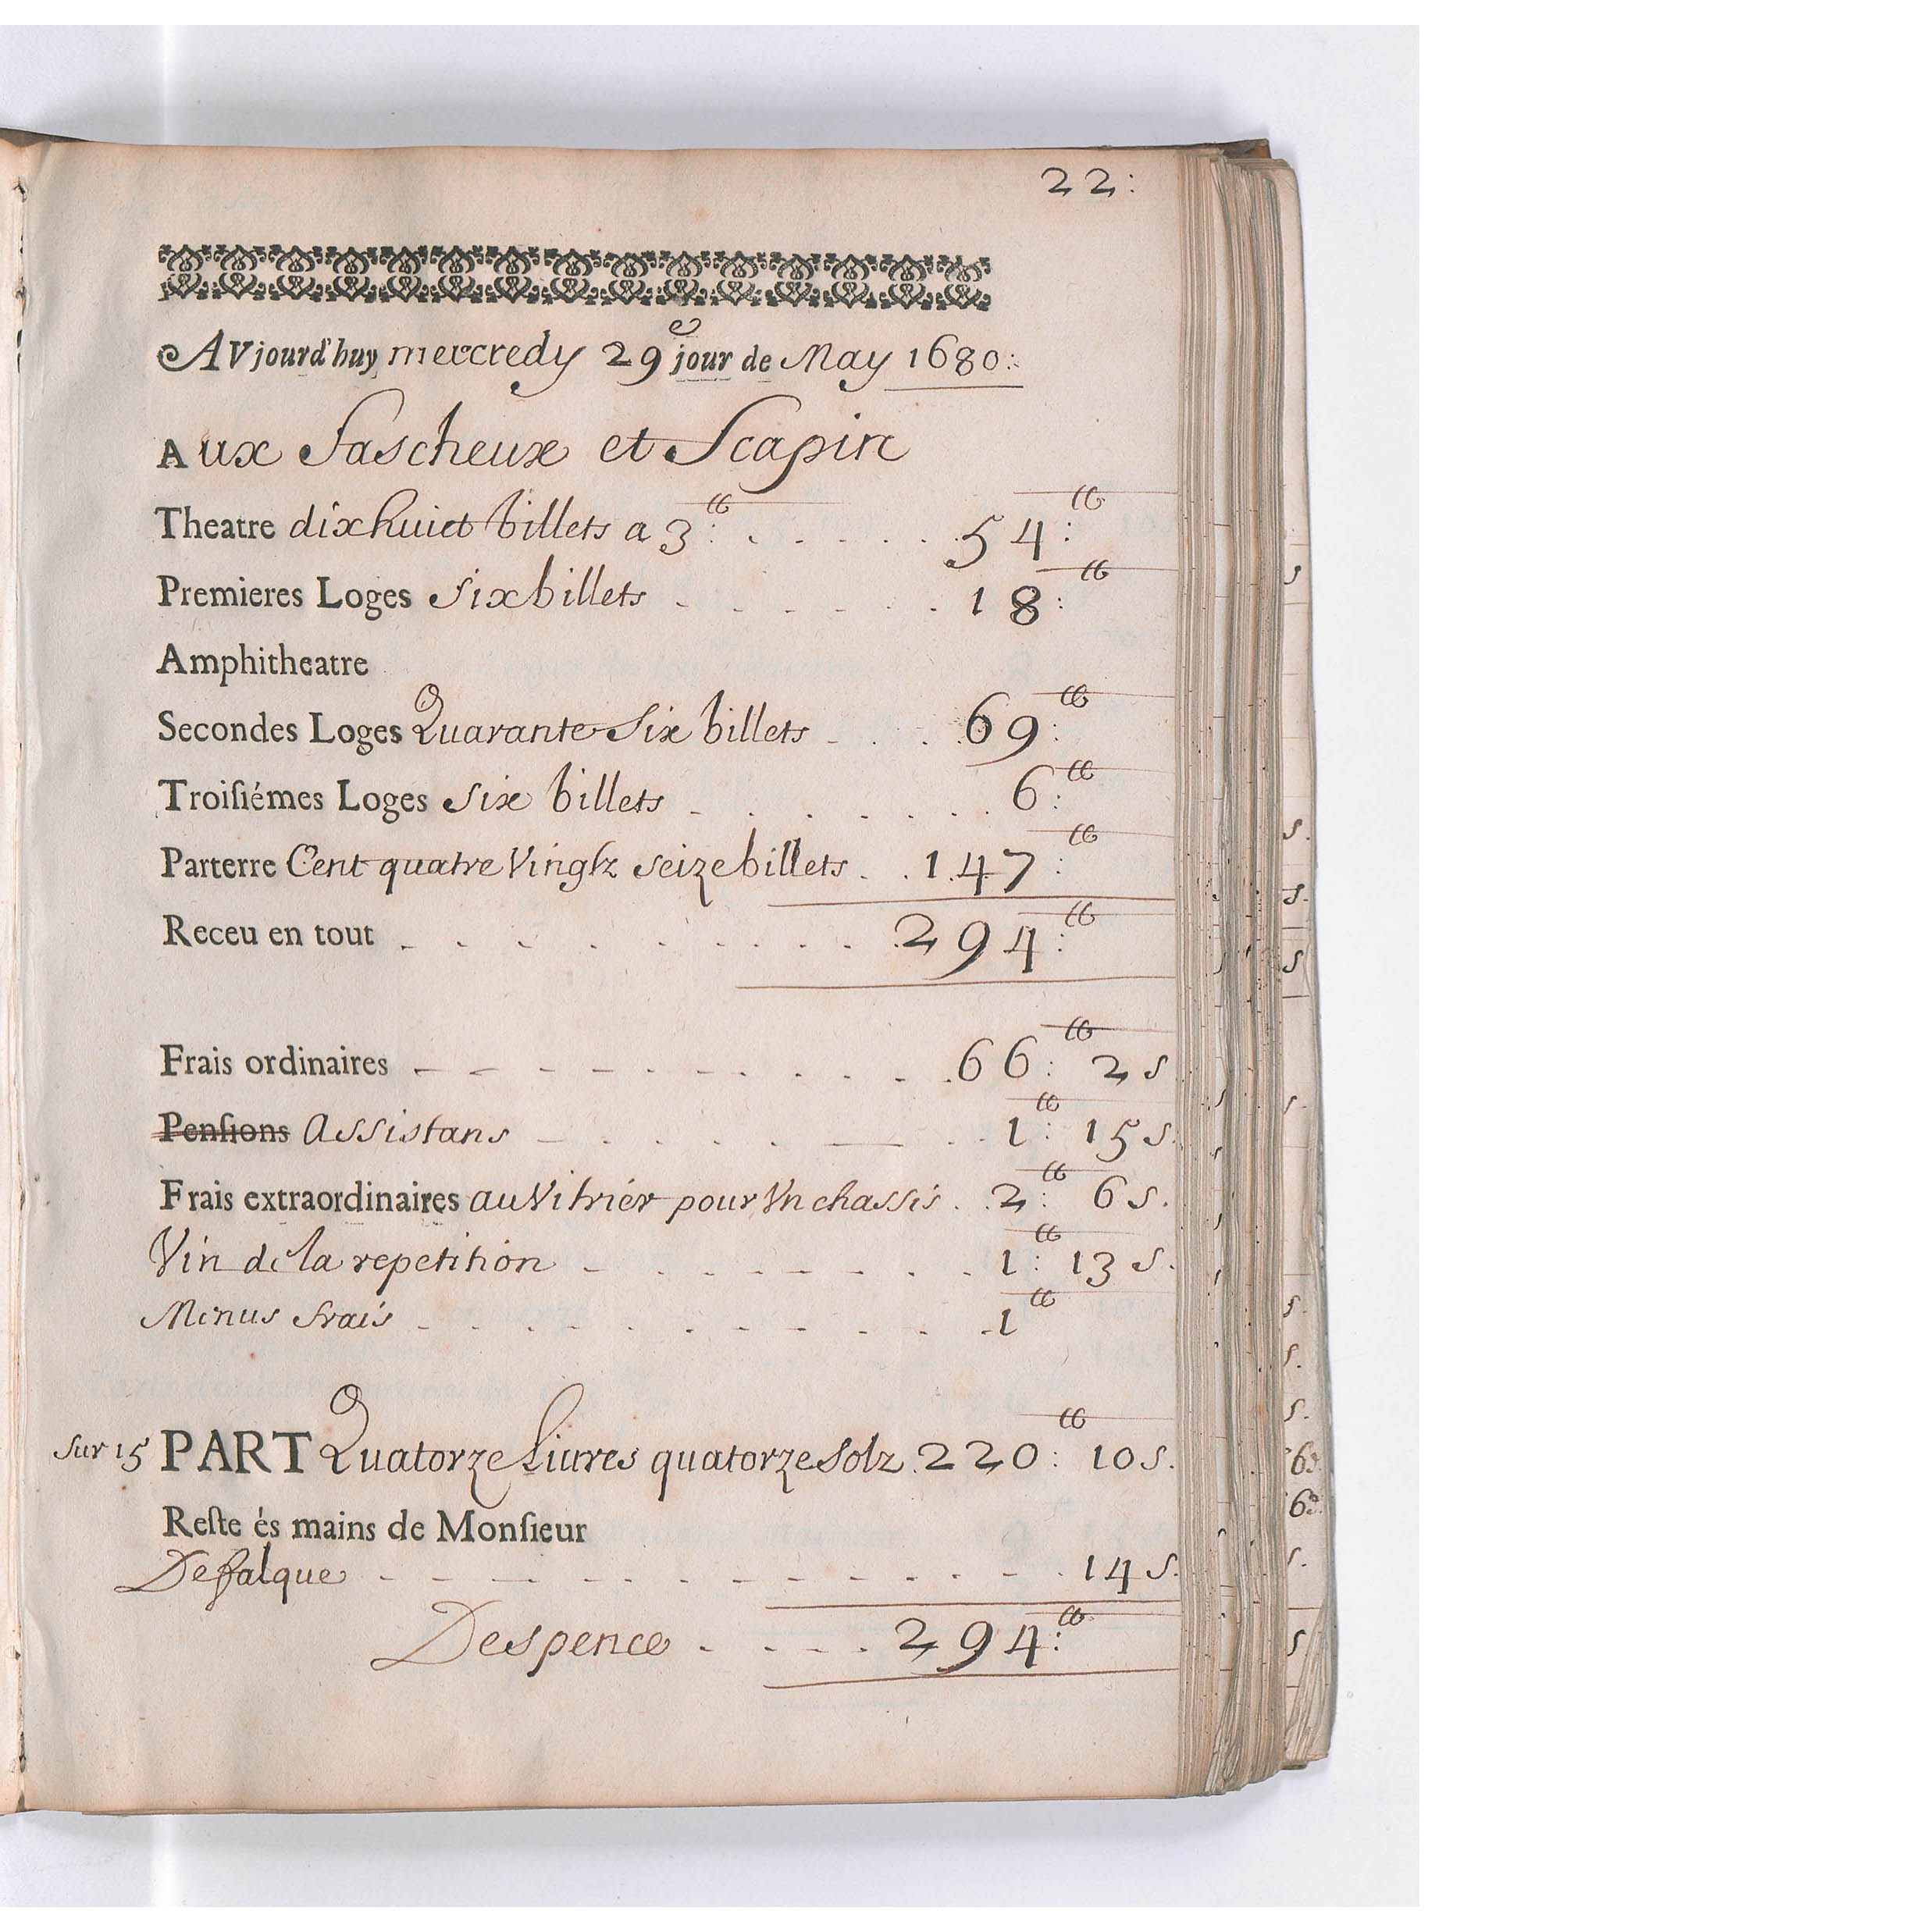 22:
AVjourd'huy mercredy 29e jour de May 1680:
Aux fascheux et Scapin
Theatre dixhuict billets a 3 ₶: . . . . . 54: ₶
Premieres Loges six billets - - - - - . 18: ₶
Amphitheatre
Secondes Loges Quarante Six billets - . . . 69: ₶
Troisiémes Loges six billets - . . . . . 6: ₶
Parterre Cent quatre Vingtz seize billets . . 147: ₶
Receu en tout - . . . . . . . . 294: ₶
Frais ordinaires - - - - - - . . . 66: ₶ 2 s
Pensions Assistans - . . . . - . . 1: ₶ 15 s.
Frais extraordinaires au Vitrier pour Vn chassis . . 2: ₶ 6 s.
Vin de la repetition - - - - - - . . 1: ₶ 13 s.
Menus frais - - - - - - - - . 1 ₶
Sur 15 PART Quatorze Liures quatorze solz . 220: ₶ 10 s.
Reste és mains de Monsieur
Defalque - - - - - - - - - - . 14 s.
Despence . - - - . 294: ₶